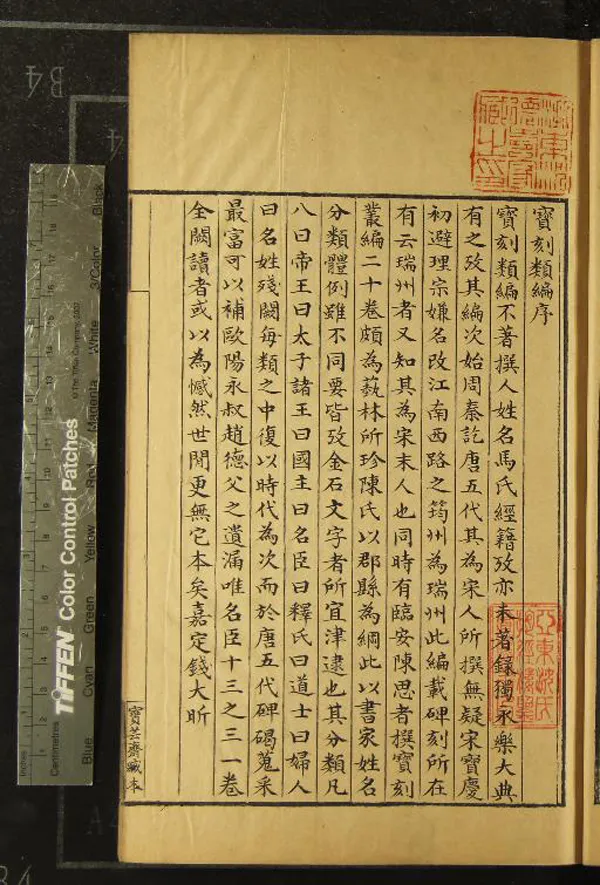 寶刻類編序
寶刻類編不著撰人姓名馬氏經籍攷亦未著錄獨永樂大典
有之攷其編次始周秦訖唐五代其為宋人所撰無疑宋寶慶
初避理宗嫌名改江南西路之筠州為瑞州此編載碑刻所在
有云瑞州者又知其為宋末人也同時有臨安陳思者撰寶刻
叢編二十卷頗為藝林所珍陳氏以郡縣為綱此以書家姓名
分類體例雖不同要皆攷金石文字者所宜津逮也其分類凡
八曰帝王曰太子諸王曰國主曰名臣曰釋氏曰道士曰婦人
曰名姓殘闕每類之中復以時代為次而於唐五代碑碣蒐采
最富可以補歐陽永叔趙德父之遺漏唯名臣十三之三一卷
全闕讀者或以為憾然世閒更無它本矣嘉定錢大昕
寶芸齋藏本
B4
4
A4
B4
Inches
Centimetres
TIFFEN Color Control Patches
© The Tiffen Company, 2007
Blue
Cyan
Green
Yellow
Red
Magenta
White
3/Color
Black